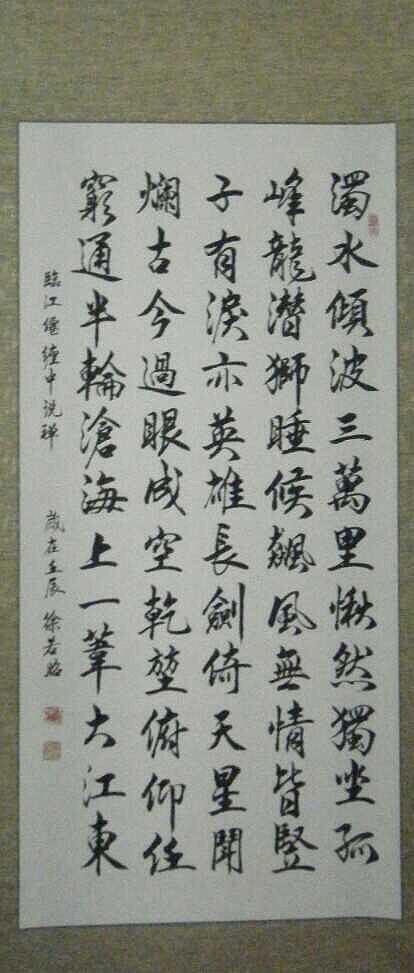 濁水傾波三萬里愀然獨坐孤
峰龍潛獅睡候飆風無情皆豎
子有淚亦英雄長劍倚天星聞
爛古今過眼成空乾堃俯仰任
窮通半輪滄海上一葦大江東
臨江僊纏中说禅 歲在壬辰 徐若